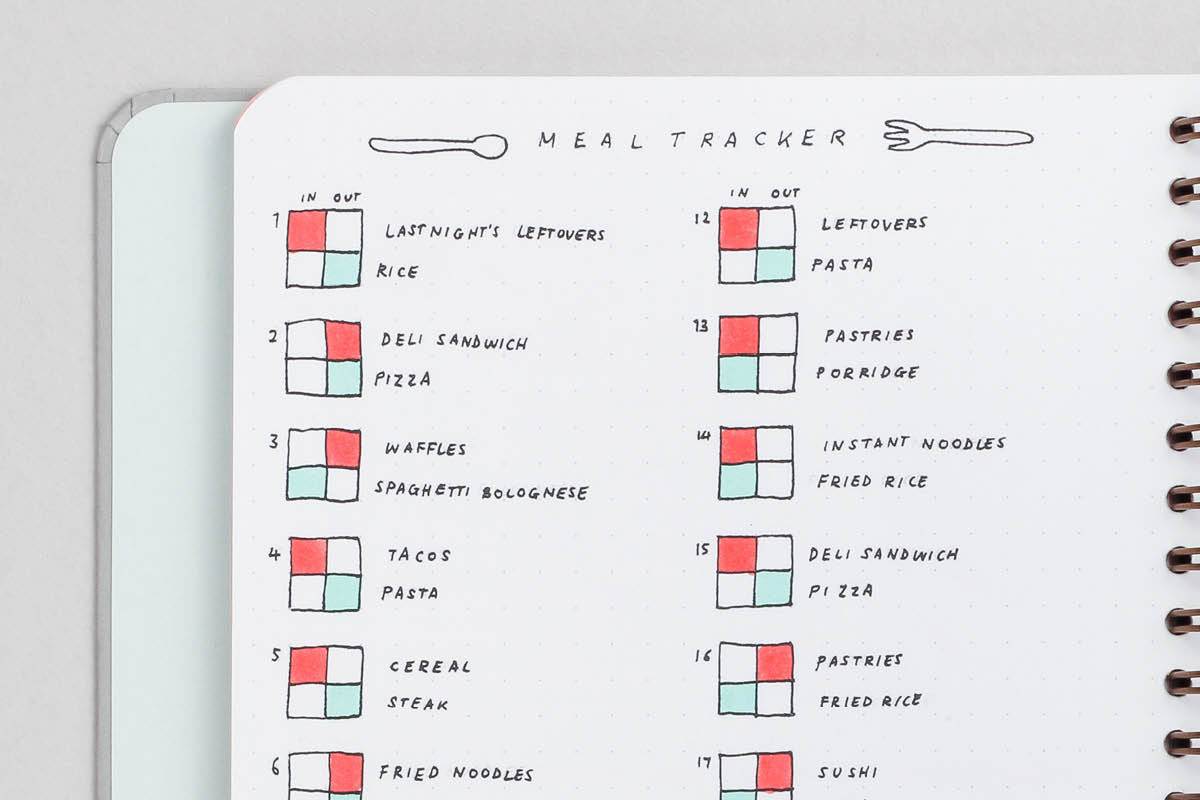 MEAL TRACKER
IN OUT
1 LAST NIGHT'S LEFTOVERS
RICE
2 DELI SANDWICH
PIZZA
3 WAFFLES
SPAGHETTI BOLOGNESE
4 TACOS
PASTA
5 CEREAL
STEAK
6 FRIED NOODLES
IN OUT
12 LEFTOVERS
PASTA
13 PASTRIES
PORRIDGE
14 INSTANT NOODLES
FRIED RICE
15 DELI SANDWICH
PIZZA
16 PASTRIES
FRIED RICE
17 SUSHI